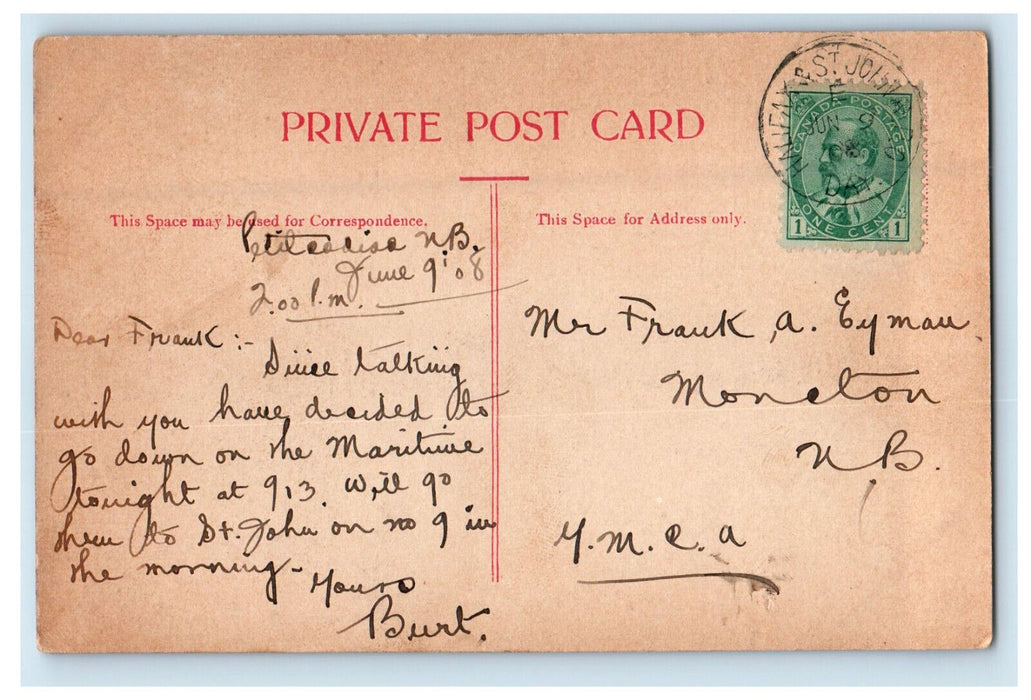 PRIVATE POST CARD
This Space may be used for Correspondence.
Petitcodiac N.B.
June 9' 08
2.00 P.m.
Dear Frank :-
Since talking
with you have decided to
go down on the Maritime
tonight at 913. Will go
thru to St. John on no 9 in
the morning-
Yours
Burt.
This Space for Address only.
Mr Frank A. Eyman
Moncton
N B.
Y. M. C. A
& ST. JOHN
E
JUN 9
08
CANADA POSTAGE
1 ONE CENT 1